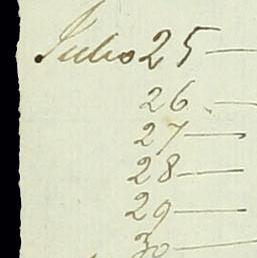 Julio 25 —
26 —
27 —
28 —
29 —
30 —